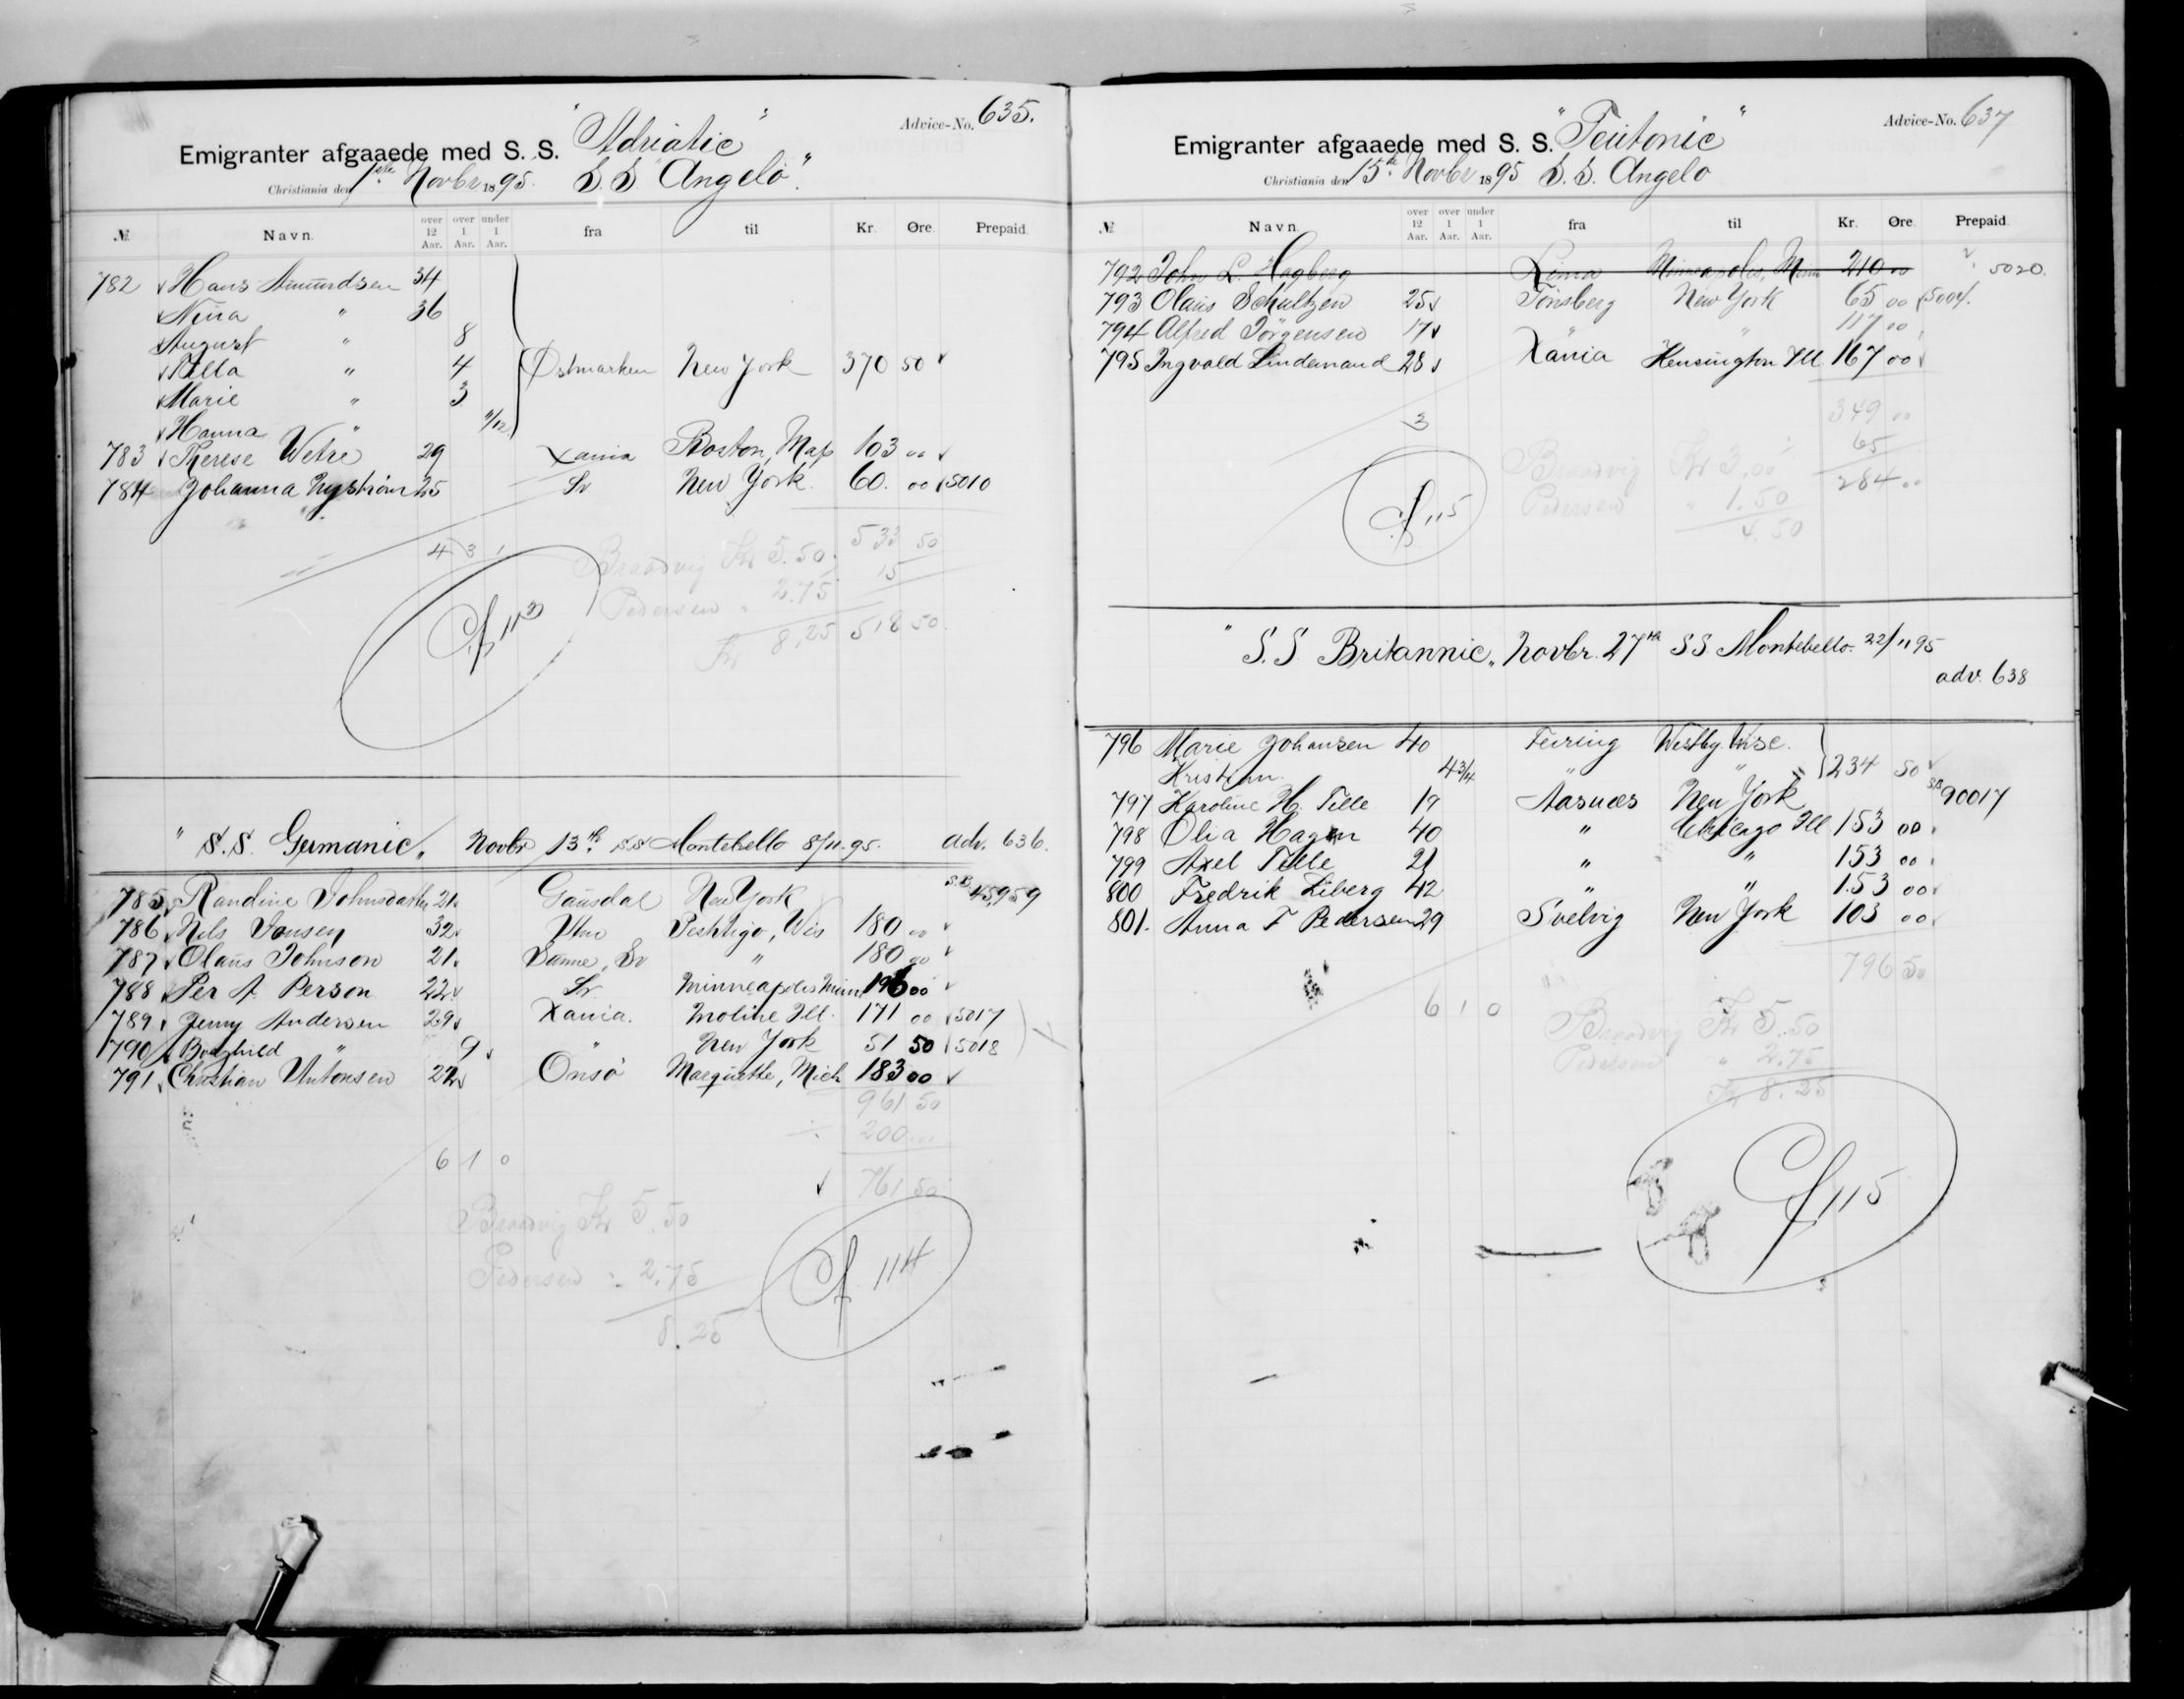 "Adriatic" Advice-No. 635.
Emigranter afgaaede med S. S.
Christiania den 1ste Novbr 1895. S.S. Angelo".
№ Navn. over 12 Aar. over 1 Aar. under 1 Aar. fra til Kr. Øre. Prepaid.
782 Hans Amundsen 34
Nina " 36
August " 8
" 4 Østmarken New York 370 50
Marie " 3
Hanna " 11/12
783 Therese Wetre 29 Xania Boston, Mass 103 00
784 Johanna Nyström 25 Sv New York. 60. 00 5010
4 3 1 533 50
Braadvig Kr 5.50 15
Pedersen " 2.75
Kr 8,25 518 50.
Cf 113
" S.S. Germanic" Novbr 13th SS Montebello 8/11.95. adv. 636.
785 Randine Johnsdatter 21 Gausdal New York S.B. 45959
786 Nils Jonsen 32 Peshtigo, Wis 180 00
787 Olaus Johnson 21 Sanne, Sv " 180 00
788 Per A. Person 22 Sv Minneapolis Minn 196 00
789 Jenny Andersen 29 Xania. Moline Ill. 171 00 5017
790 Borghild " 9 " New York 51 50 5018
791 Christian Antonsen 22 Onsö Marquette, Mich 183 00
961 50
÷ 200 00
6 1 0
761 50
Braadvig Kr 5.50
Pedersen " 2.75
8.25
Cf 114
Advice-No. 637
Emigranter afgaaede med S. S. "Teutonic"
Christiania den 15th Novbr 1895 S.S. Angelo
№ Navn. over 12 Aar. over 1 Aar. under 1 Aar. fra til Kr. Øre. Prepaid.
792 John L. Hagberg Lima Minneapolis, Minn 210 00 5020.
793 Olaus Schultzen 25 Tönsberg New York 65 00 5004.
794 Alfred Jörgensen 17 " " 117 00
795 Ingvald Lindemand 28 Xania Kensington Ill 167 00
3 349 00
65
Braadvig Kr 3.00 284 00
Pedersen " 1.50
4.50
Cf 115
" S.S. Britannic" Novbr. 27th SS Montebello. 22/11 95
adv. 638
796 Marie Johansen 40 Feiring Westby Wisc.
Kristian 4 3/4 " " 234 50
797 Karoline H. Tille 19 Aasnæs New York SB 90017
798 Olia Hagen 40 " Chicago Ill 153 00
799 Axel Tille 21 " " 153 00
800 Fredrik Liberg 42 " " 153 00
801. Anna F Pedersen 29 Svelvig New York 103 00
796 50
6 1 0
Braadvig Kr 5.50
Pedersen " 2.75
Kr 8.25
Cf 115